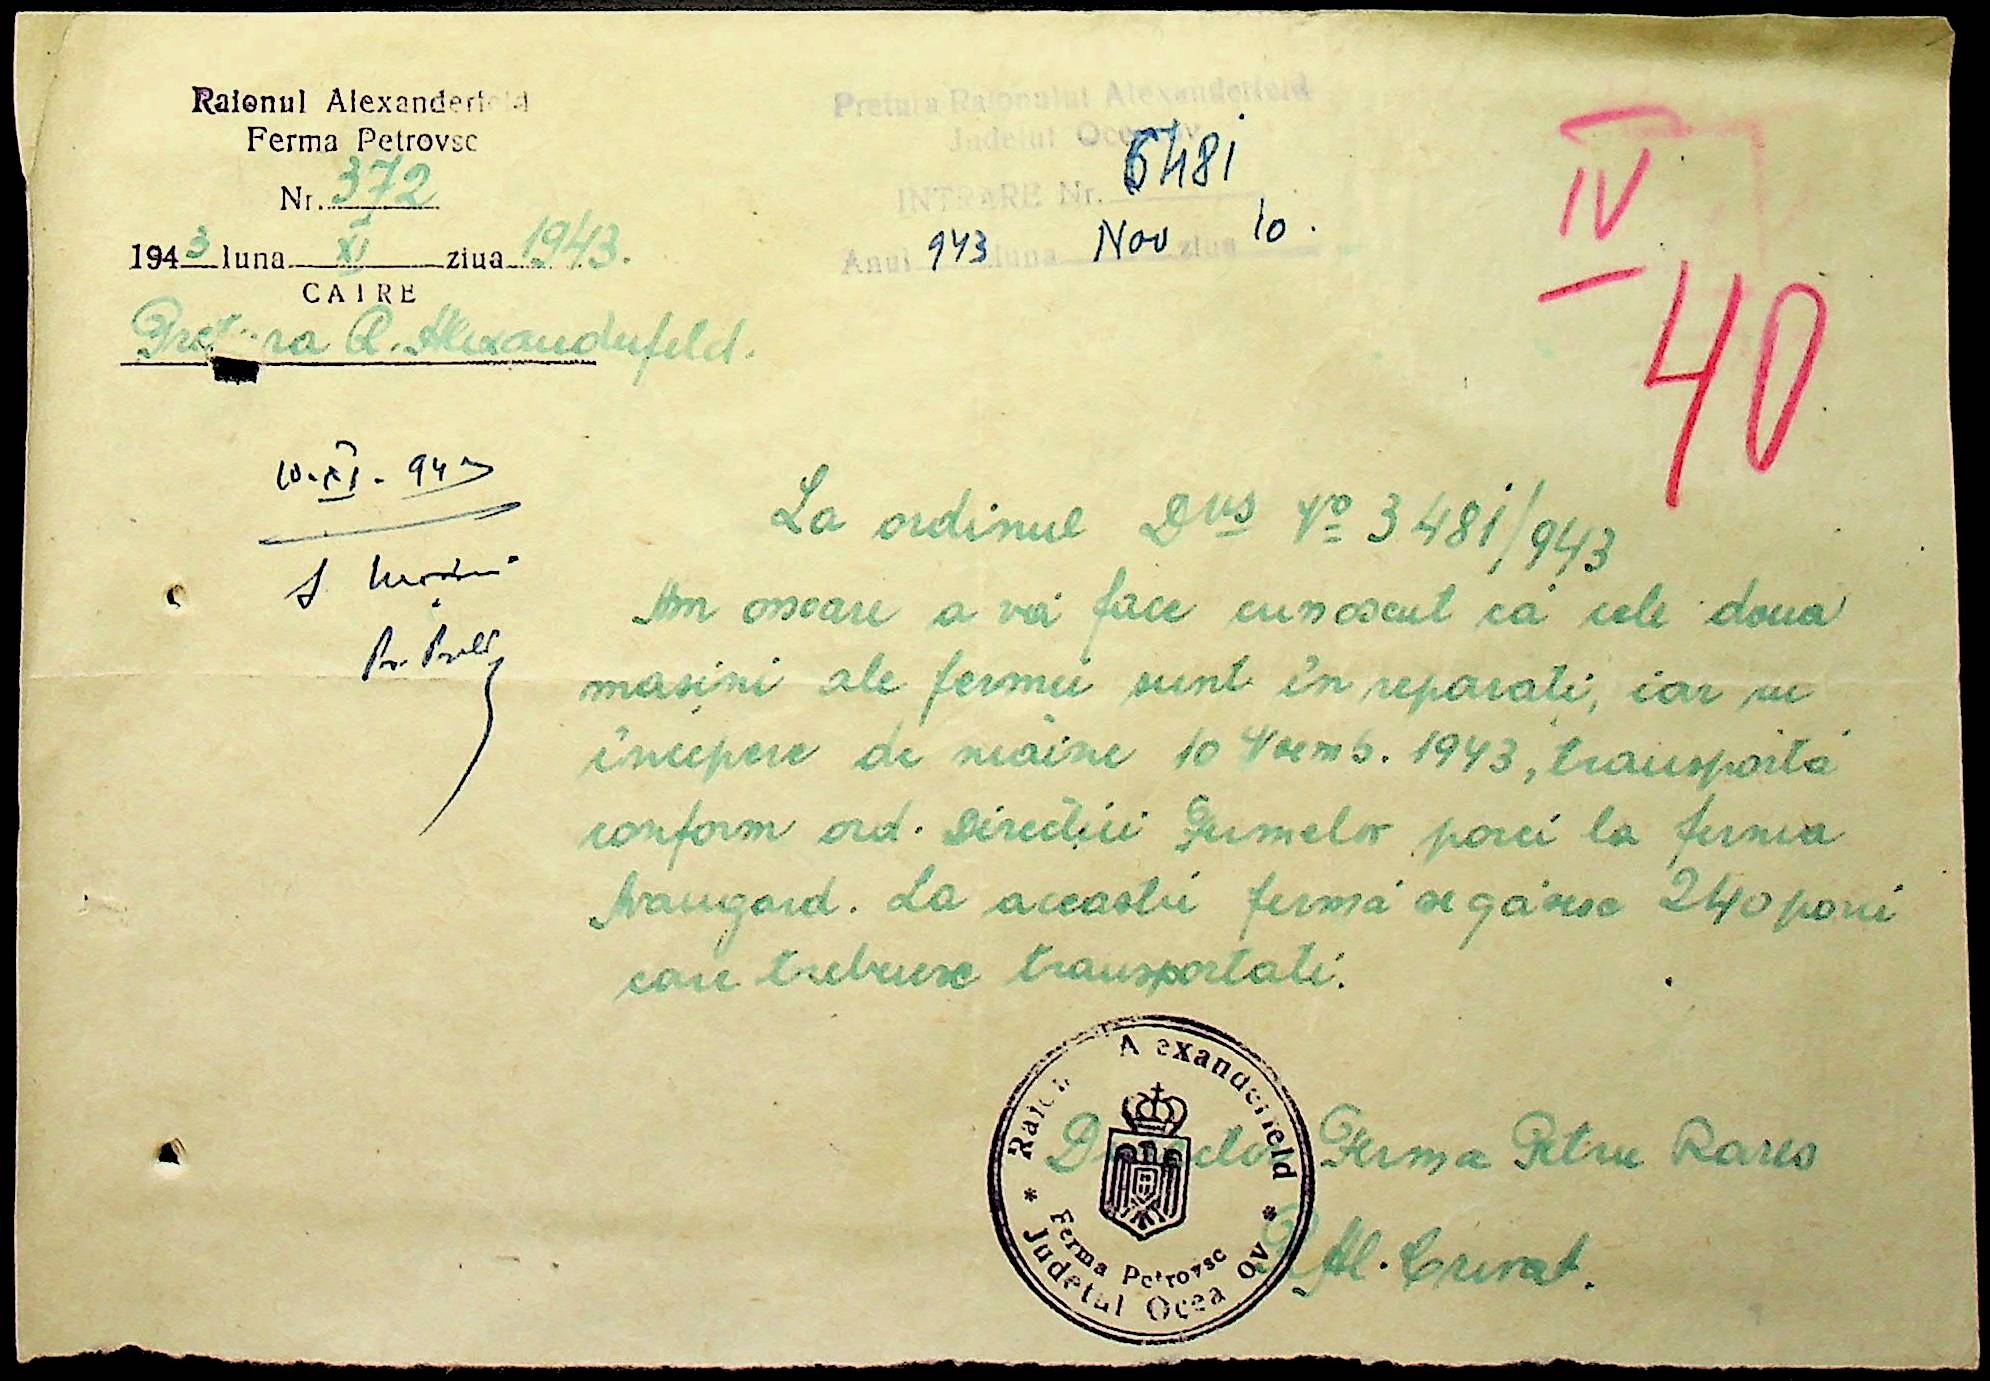 Raionul Alexanderfeld
Ferma Petrovsc
Nr. 372
1943 luna XI ziua 1943.
CATRE
Pretura R. Alexanderfeld.
Pretura Raionului Alexanderfeld
Judetul Oceacov
INTRARE Nr. 6481
Anul 943 luna Nov ziua 10.
IV
40
10.XI.943
La ordinul Dvs No 3481/943
Am onoare a vă face cunoscut că cele doua
mașini ale fermei sunt în reparați, iar cu
începere de mâine 10 Noemb. 1943, transportă
conform ord. Direcției Fermelor porci la ferma
Avangard. La această fermă se găsesc 240 porci
care trebuesc transportati.
Director Ferma Petru Rares
Al.
Raion Alexanderfeld
Ferma Petrovsc
* Judetul Oceacov *